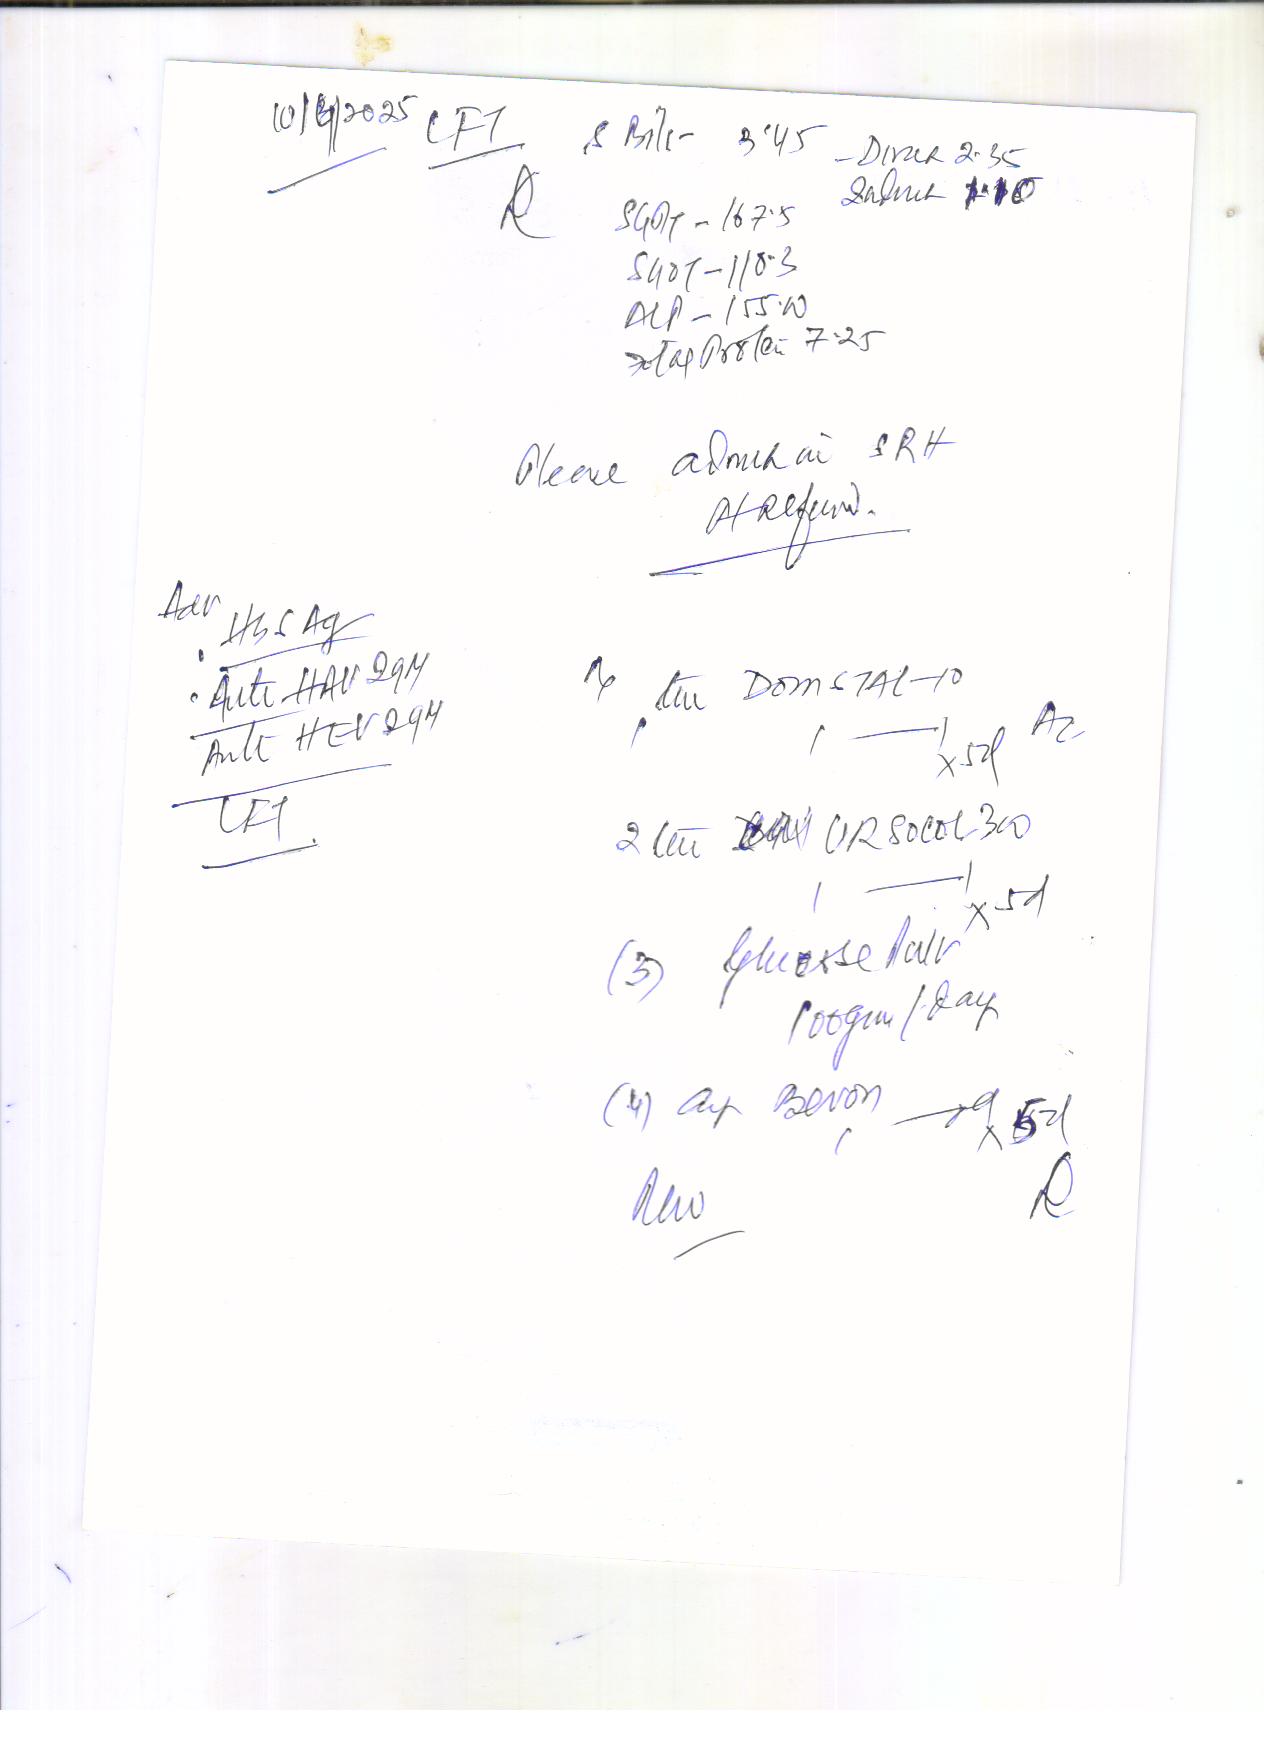 10/6/2025 LFT S Bili - 3.45 - Direct 2.35
Indirect 1.10
R
SGPT - 167.5
SGOT - 118.3
ALP - 155.00
Total Protein 7.25
Please admit in SRH
Pt Refused.
Adv
. HbSAg
. Anti HAV IgM
Anti HEV IgM
LFT.
Rx
. Tab DOMSTAL-10
1 — 1 x 5d AC
2 Tab URSOCOL 300
1 — 1 x 5d
(3) Glucose Pulv
100gm/day
(4) Cap Bevon
1 — x 5d
Rev
R